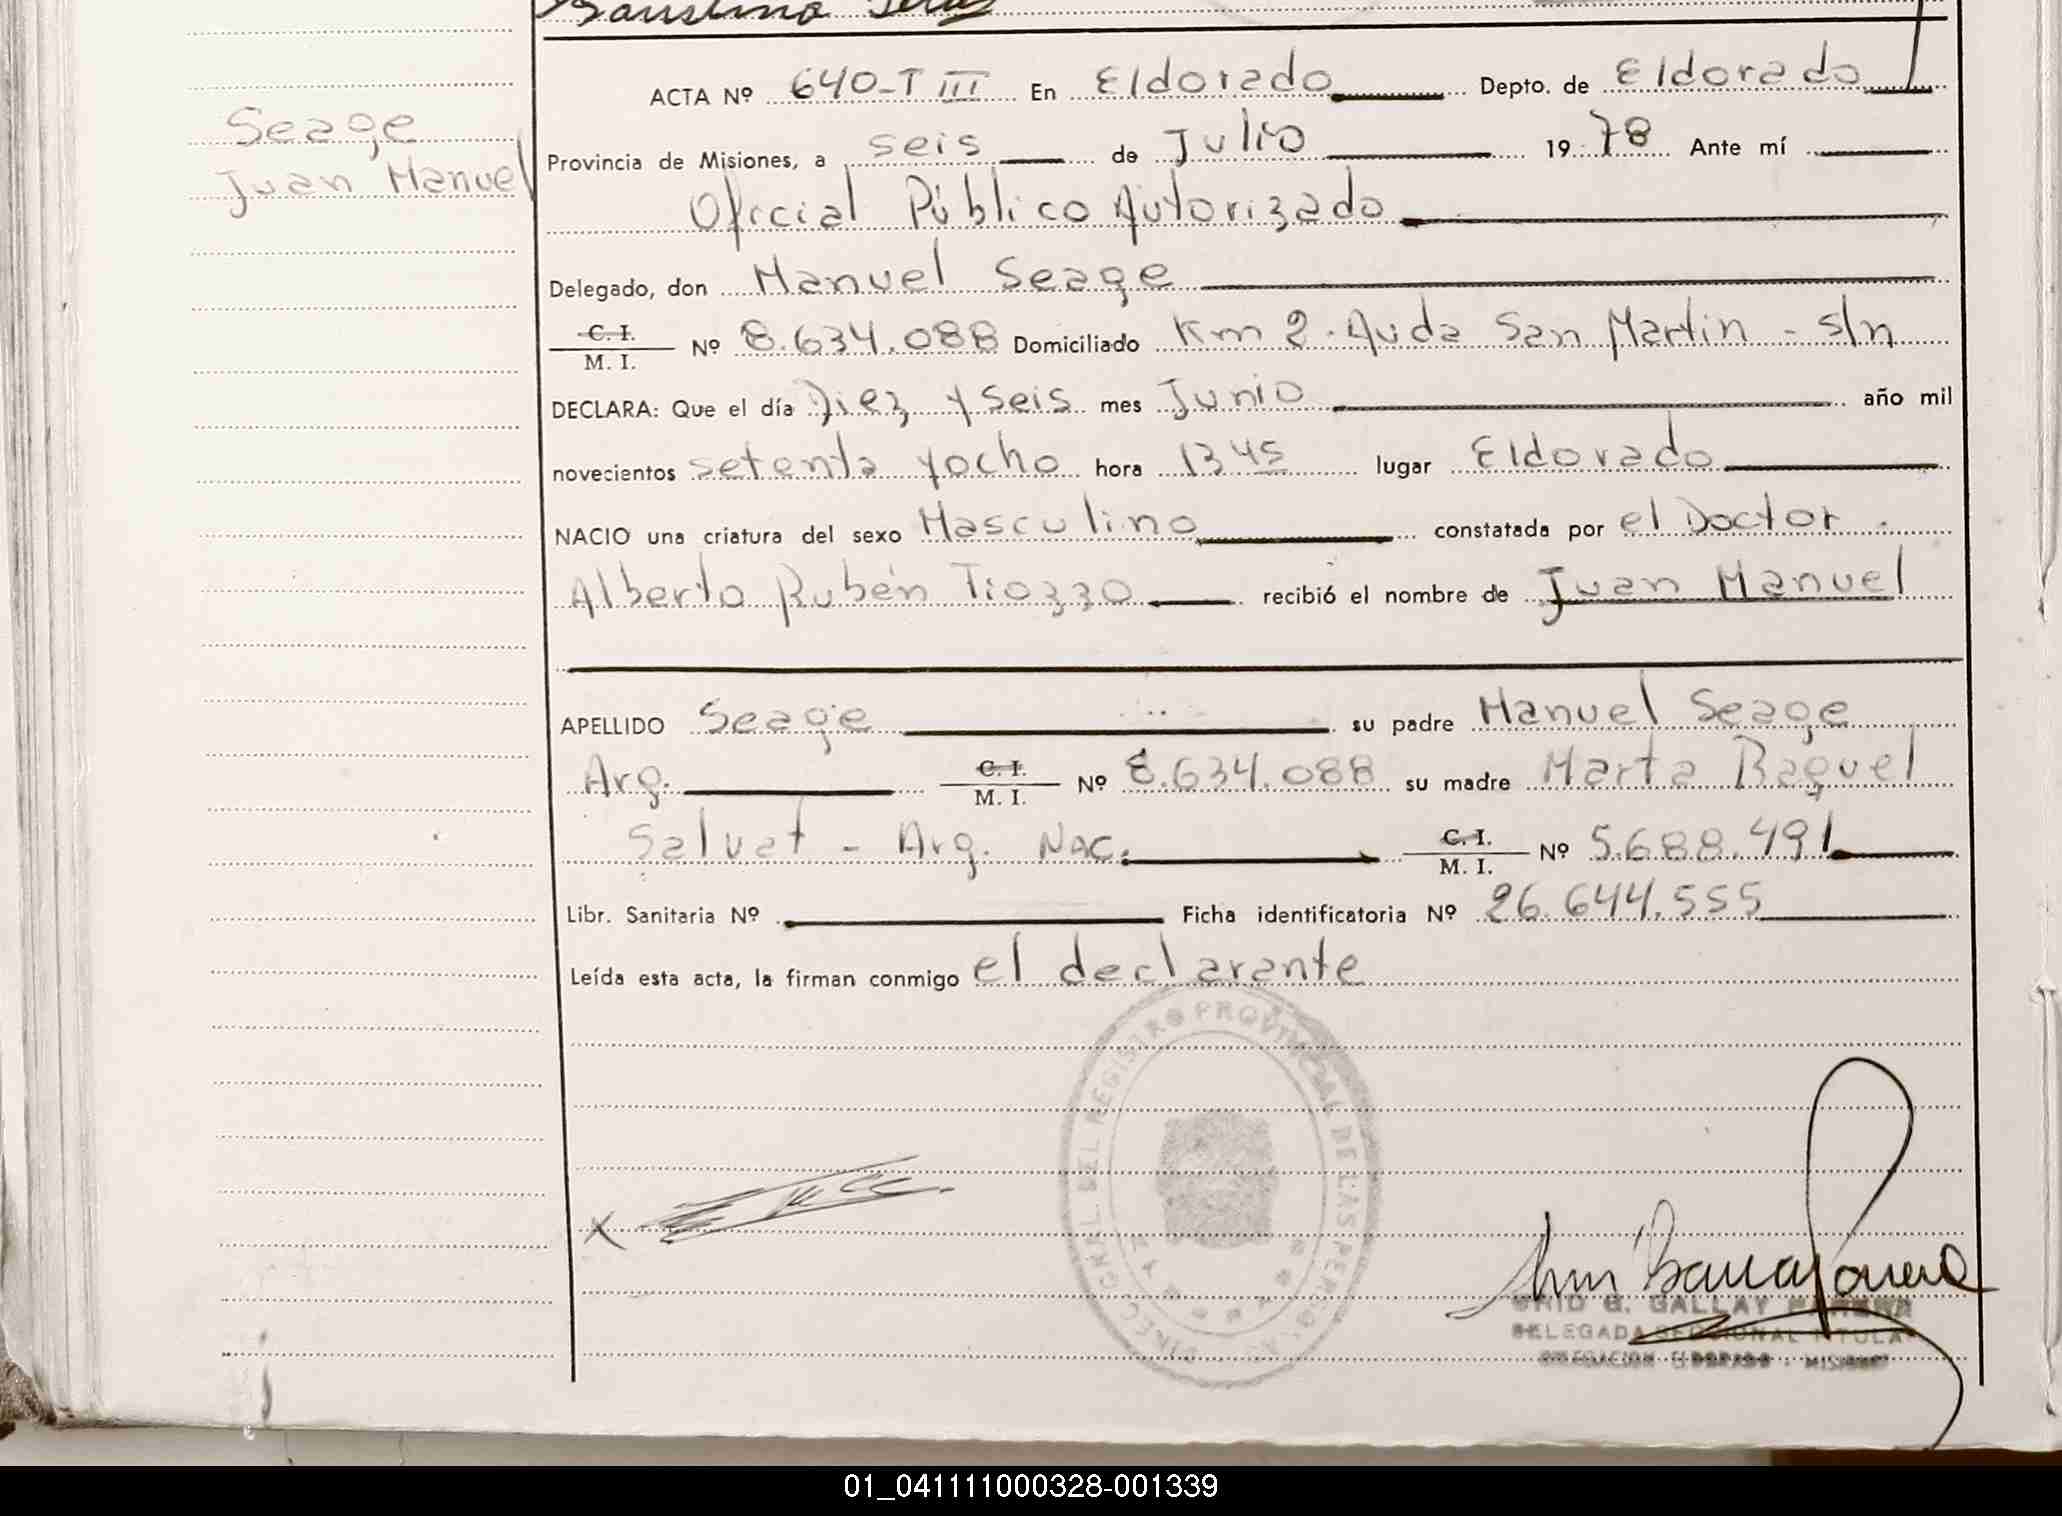 Faustino
ACTA Nº 640-T III En Eldorado Depto. de Eldorado
Seage
Juan Manuel
Provincia de Misiones, a seis de Julio 1978 Ante mí
Oficial Público Autorizado
Delegado, don Manuel Seage
C. I.
M. I. Nº 8.634.088 Domiciliado Km 2 - Avda San Martin - s/n
DECLARA: Que el día Diez y seis mes Junio año mil
novecientos setenta y ocho hora 13 45 lugar Eldorado
NACIO una criatura del sexo Masculino constatada por el Doctor
Alberto Rubén Tiozzo recibió el nombre de Juan Manuel
APELLIDO Seage su padre Manuel Seage
Arg. C. I.
M. I. Nº 8.634.088 su madre Marta Raquel
Salvat - Arg. Nac. C. I.
M. I. Nº 5.688.491
Libr. Sanitaria Nº Ficha identificatoria Nº 26.644.555
Leída esta acta, la firman conmigo el declarante
DIREC. GRAL. DEL REGISTRO PROVINCIAL DE LAS PERSONAS
X
G. GALLAY
DELEGADA SECCIONAL TITULAR
DELEGACION ELDORADO - MISIONES
01_041111000328-001339